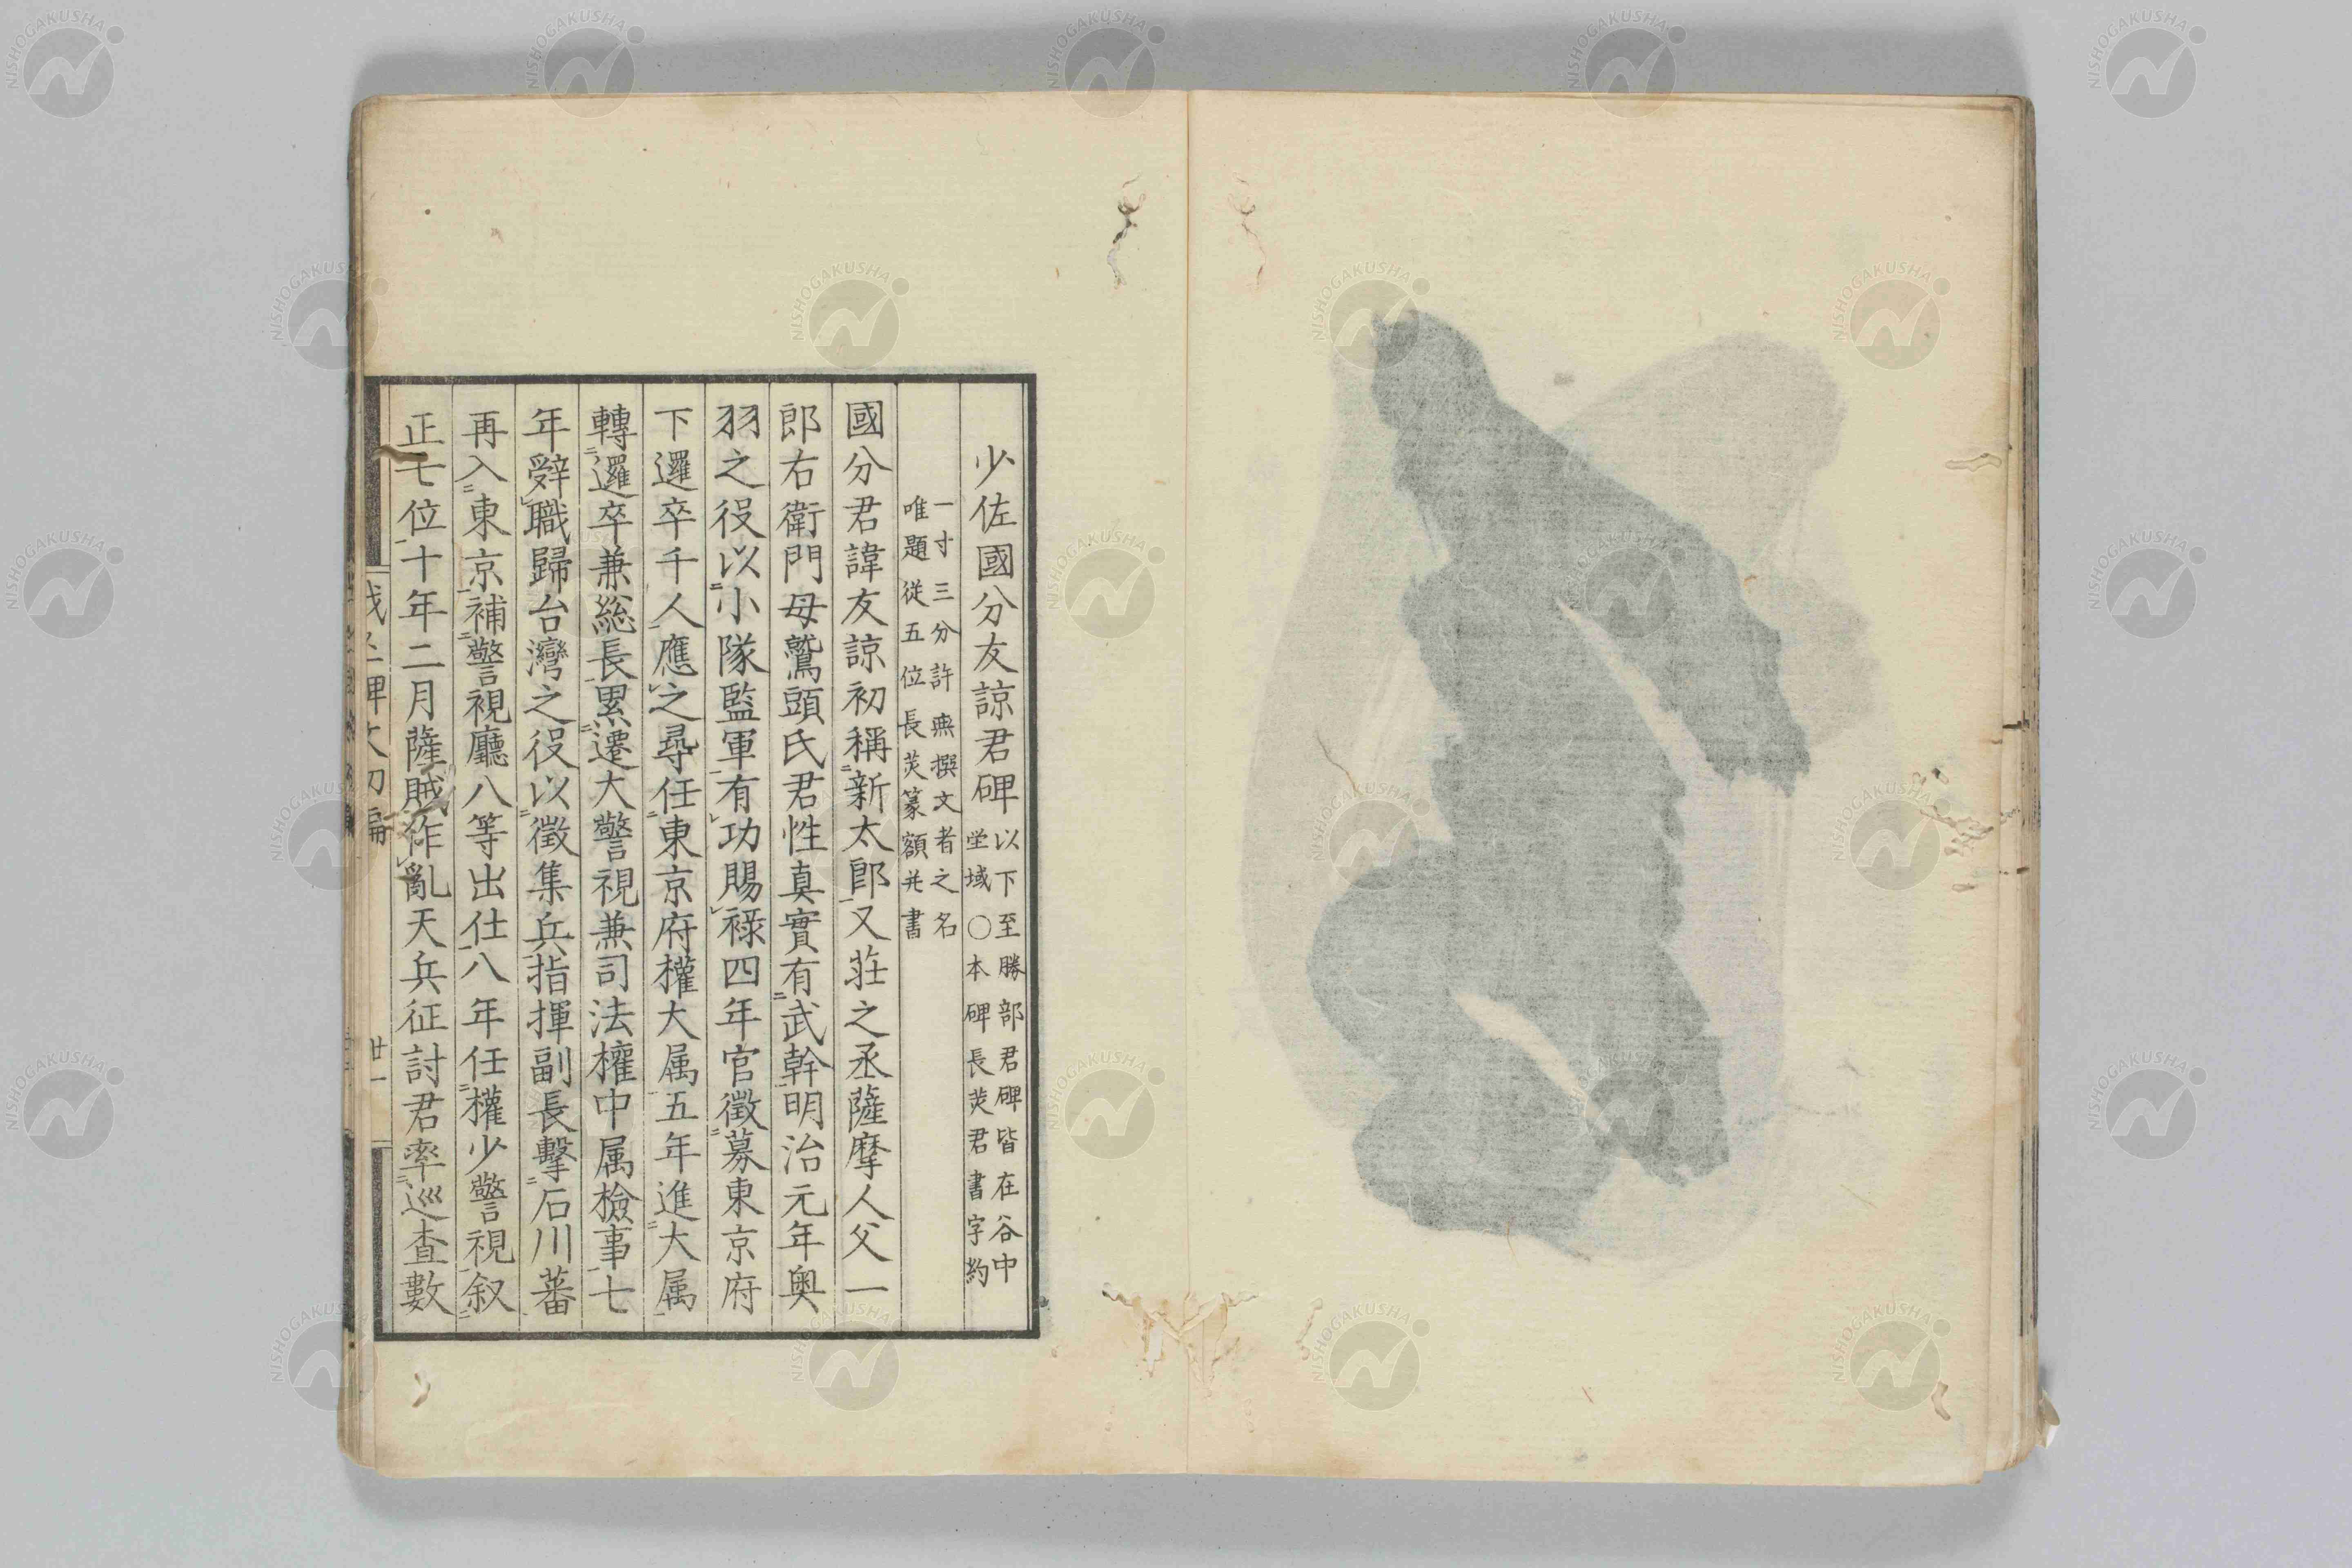 少佐國分友諒君碑 以下至勝部君碑皆在谷中
塋域〇本碑長炗君書字約
一寸三分許無撰文者之名
唯題從五位長炗篆額并書
國分君諱友諒初稱新太郎又莊之丞薩摩人父一
郎右衛門母鷲頭氏君性真實有武幹明治元年奥
羽之役以小隊監軍有功賜祿四年官徵募東京府
下邏卒千人應之尋任東京府權大属五年進大属
轉邏卒兼総長累遷大警視兼司法權中属檢事七
年辭職歸台灣之役以徵集兵指揮副長擊石川蕃
再入東京補警視廳八等出仕八年任權少警視叙
正七位十年二月薩賊作亂天兵征討君率巡査數
碑文初編
廿一
NISHOGAKUSHA